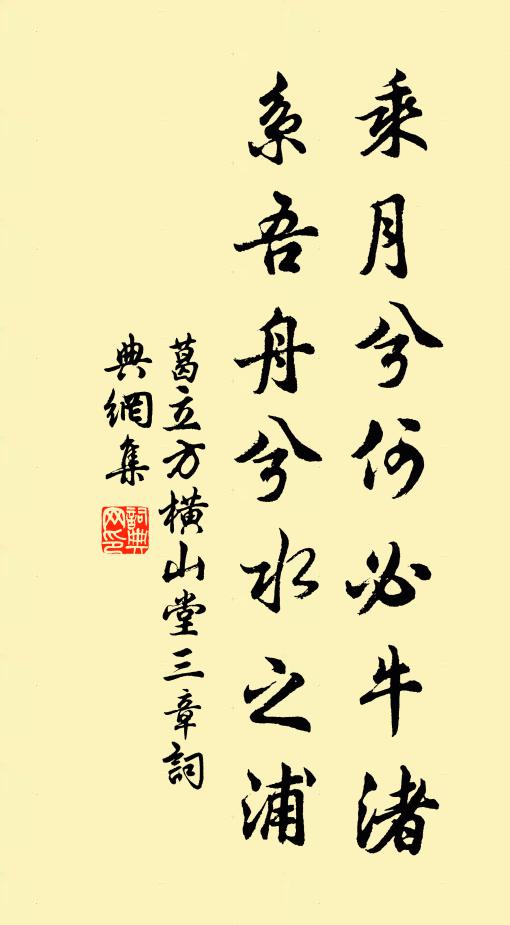 乘月兮何必牛渚
系吾舟兮水之浦
葛立方橫山堂三章詞
典網集
詞典
网印